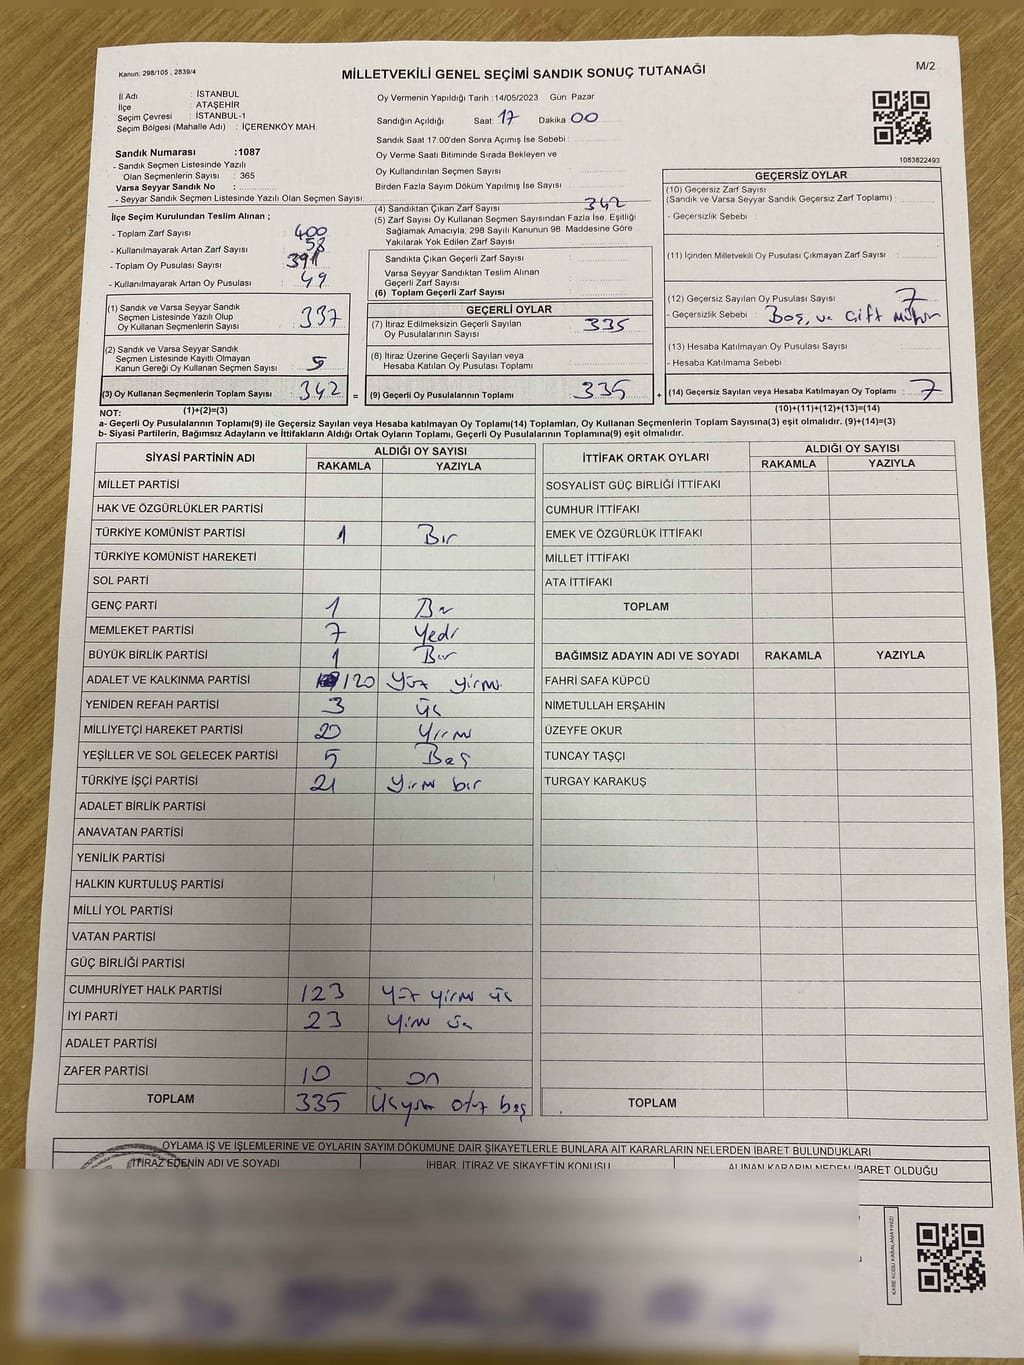 Kanun: 298/105 , 2839/4
MİLLETVEKİLİ GENEL SEÇİMİ SANDIK SONUÇ TUTANAĞI
M/2
İl Adı : İSTANBUL
İlçe : ATAŞEHİR
Seçim Çevresi : İSTANBUL-1
Seçim Bölgesi (Mahalle Adı) : İÇERENKÖY MAH.
Sandık Numarası :1087
- Sandık Seçmen Listesinde Yazılı
Olan Seçmenlerin Sayısı : 365
Varsa Seyyar Sandık No :
- Seyyar Sandık Seçmen Listesinde Yazılı Olan Seçmen Sayısı :
Oy Vermenin Yapıldığı Tarih :14/05/2023 Gün Pazar
Sandığın Açıldığı Saat: 17 Dakika 00
Sandık Saat 17:00'den Sonra Açımış İse Sebebi :
Oy Verme Saati Bitiminde Sırada Bekleyen ve
Oy Kullandırılan Seçmen Sayısı
Birden Fazla Sayım Döküm Yapılmış İse Sayısı :
1083822493
İlçe Seçim Kurulundan Teslim Alınan ;
- Toplam Zarf Sayısı : 400
- Kullanılmayarak Artan Zarf Sayısı : 58
- Toplam Oy Pusulası Sayısı : 391
- Kullanılmayarak Artan Oy Pusulası : 49
(1) Sandık ve Varsa Seyyar Sandık
Seçmen Listesinde Yazılı Olup
Oy Kullanan Seçmenlerin Sayısı : 337
(2) Sandık ve Varsa Seyyar Sandık
Seçmen Listesinde Kayıtlı Olmayan
Kanun Gereği Oy Kullanan Seçmen Sayısı : 5
(3) Oy Kullanan Seçmenlerin Toplam Sayısı : 342
(1)+(2)=(3)
(4) Sandıktan Çıkan Zarf Sayısı : 342
(5) Zarf Sayısı Oy Kullanan Seçmen Sayısından Fazla İse, Eşitliği
Sağlamak Amacıyla, 298 Sayılı Kanunun 98. Maddesine Göre
Yakılarak Yok Edilen Zarf Sayısı :
Sandıkta Çıkan Geçerli Zarf Sayısı :
Varsa Seyyar Sandıktan Teslim Alınan
Geçerli Zarf Sayısı :
(6) Toplam Geçerli Zarf Sayısı :
GEÇERLİ OYLAR
(7) İtiraz Edilmeksizin Geçerli Sayılan
Oy Pusulalarının Sayısı : 335
(8) İtiraz Üzerine Geçerli Sayılan veya
Hesaba Katılan Oy Pusulası Toplamı :
= (9) Geçerli Oy Pusulalarının Toplamı : 335 +
GEÇERSİZ OYLAR
(10) Geçersiz Zarf Sayısı
(Sandık ve Varsa Seyyar Sandık Geçersiz Zarf Toplamı) :
- Geçersizlik Sebebi :
(11) İçinden Milletvekili Oy Pusulası Çıkmayan Zarf Sayısı :
(12) Geçersiz Sayılan Oy Pusulası Sayısı : 7
- Geçersizlik Sebebi : Boş, ve çift mühür
(13) Hesaba Katılmayan Oy Pusulası Sayısı :
- Hesaba Katılmama Sebebi :
(14) Geçersiz Sayılan veya Hesaba Katılmayan Oy Toplamı : 7
(10)+(11)+(12)+(13)=(14)
NOT:
a- Geçerli Oy Pusulalarının Toplamı(9) ile Geçersiz Sayılan veya Hesaba katılmayan Oy Toplamı(14) Toplamları, Oy Kullanan Seçmenlerin Toplam Sayısına(3) eşit olmalıdır. (9)+(14)=(3)
b- Siyasi Partilerin, Bağımsız Adayların ve İttifakların Aldığı Ortak Oyların Toplamı, Geçerli Oy Pusulalarının Toplamına(9) eşit olmalıdır.
SİYASİ PARTİNİN ADI ALDIĞI OY SAYISI
RAKAMLA YAZIYLA
MİLLET PARTİSİ
HAK VE ÖZGÜRLÜKLER PARTİSİ
TÜRKİYE KOMÜNİST PARTİSİ 1 Bir
TÜRKİYE KOMÜNİST HAREKETİ
SOL PARTİ
GENÇ PARTİ 1 Bir
MEMLEKET PARTİSİ 7 Yedi
BÜYÜK BİRLİK PARTİSİ 1 Bir
ADALET VE KALKINMA PARTİSİ 120 Yüz yirmi
YENİDEN REFAH PARTİSİ 3 Üç
MİLLİYETÇİ HAREKET PARTİSİ 20 Yirmi
YEŞİLLER VE SOL GELECEK PARTİSİ 5 Beş
TÜRKİYE İŞÇİ PARTİSİ 21 Yirmi bir
ADALET BİRLİK PARTİSİ
ANAVATAN PARTİSİ
YENİLİK PARTİSİ
HALKIN KURTULUŞ PARTİSİ
MİLLİ YOL PARTİSİ
VATAN PARTİSİ
GÜÇ BİRLİĞİ PARTİSİ
CUMHURİYET HALK PARTİSİ 123 Yüz yirmi üç
İYİ PARTİ 23 Yirmi üç
ADALET PARTİSİ
ZAFER PARTİSİ 10 On
TOPLAM 335 Üçyüz otuz beş
İTTİFAK ORTAK OYLARI ALDIĞI OY SAYISI
RAKAMLA YAZIYLA
SOSYALİST GÜÇ BİRLİĞİ İTTİFAKI
CUMHUR İTTİFAKI
EMEK VE ÖZGÜRLÜK İTTİFAKI
MİLLET İTTİFAKI
ATA İTTİFAKI
TOPLAM
BAĞIMSIZ ADAYIN ADI VE SOYADI RAKAMLA YAZIYLA
FAHRİ SAFA KÜPCÜ
NİMETULLAH ERŞAHİN
ÜZEYFE OKUR
TUNCAY TAŞÇI
TURGAY KARAKUŞ
TOPLAM
OYLAMA İŞ VE İŞLEMLERİNE VE OYLARIN SAYIM DÖKÜMÜNE DAİR ŞİKAYETLERLE BUNLARA AİT KARARLARIN NELERDEN İBARET BULUNDUKLARI
İTİRAZ EDENİN ADI VE SOYADI İHBAR, İTİRAZ VE ŞİKAYETİN KONUSU ALINAN KARARIN NEDEN İBARET OLDUĞU
KARE KODU KARALAMAYINIZ!